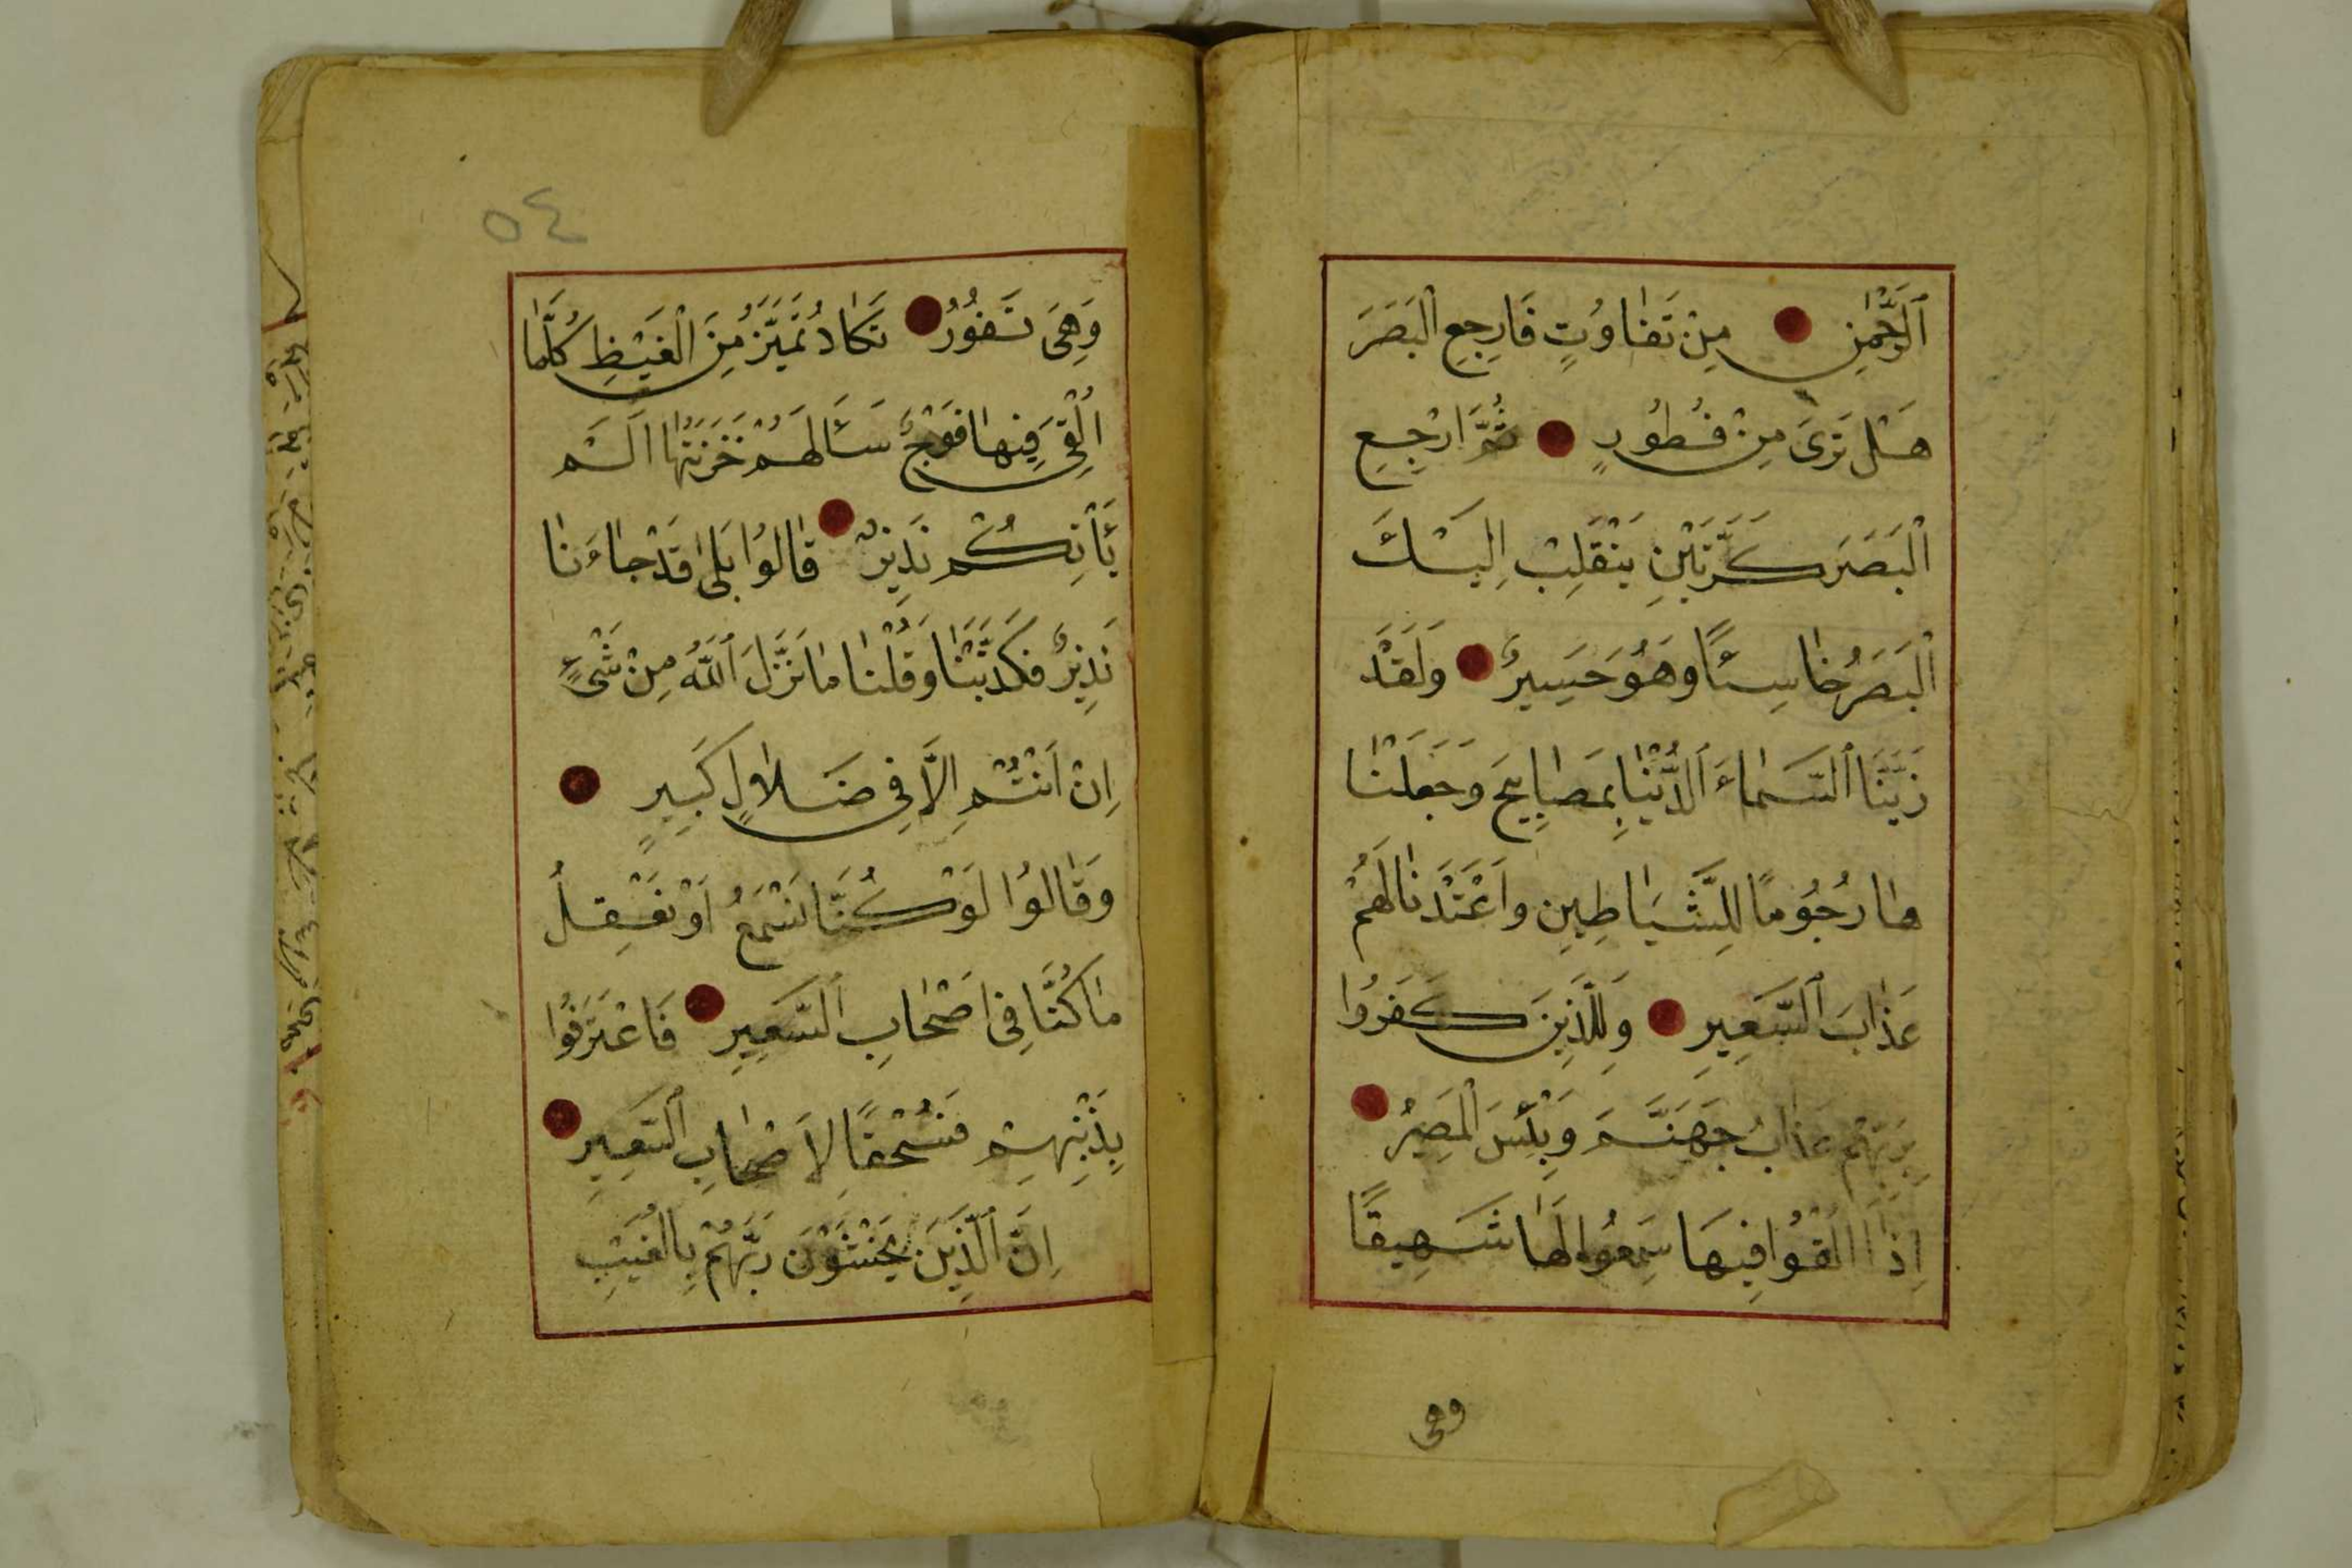 اَلرَّحْمٰنِ مِنْ تَفٰاوُتٍ فَارْجِعِ الْبَصَرَ
هَلْ تَرٰى مِنْ فُطُورٍ ثُمَّ ارْجِعِ
الْبَصَرَ كَرَّتَيْنِ يَنْقَلِبْ اِلَيْكَ
الْبَصَرُ خٰاسِئًا وَهُوَ حَسِيرٌ وَلَقَدْ
زَيَّنَّا السَّمٰاءَ الدُّنْيٰا بِمَصٰابِيحَ وَجَعَلْنٰا
هٰا رُجُومًا لِلشَّيٰاطِينِ وَاَعْتَدْنٰا لَهُمْ
عَذٰابَ السَّعِيرِ وَلِلَّذِينَ كَفَرُوا
بِرَبِّهِمْ عَذٰابُ جَهَنَّمَ وَبِئْسَ الْمَصِيرُ
اِذٰا اُلْقُوا فِيهَا سَمِعُوا لَهٰا شَهِيقًا
وهى
٥٤
وَهِىَ تَفُورُ تَكٰادُ تَمَيَّزُ مِنَ الْغَيْظِ كُلَّمٰا
اُلْقِىَ فِيهٰا فَوْجٌ سَئَالَهُمْ خَزَنَتُهٰا اَلَمْ
يَأْتِكُمْ نَذِيرٌ قٰالُوا بَلٰى قَدْ جٰاءَنٰا
نَذِيرٌ فَكَذَّبْنٰا وَقُلْنٰا مٰا نَزَّلَ اللّٰهُ مِنْ شَىْءٍ
اِنْ اَنْتُمْ اِلَّا فِى ضَلٰالٍ كَبِيرٍ
وَقٰالُوا لَوْ كُنَّا نَسْمَعُ اَوْ نَعْقِلُ
مٰا كُنَّا فِى اَصْحٰابِ السَّعِيرِ فَاعْتَرَفُوا
بِذَنْبِهِمْ فَسُحْقًا لِاَصْحٰابِ السَّعِيرِ
اِنَّ الَّذِينَ يَخْشَوْنَ رَبَّهُمْ بِالْغَيْبِ